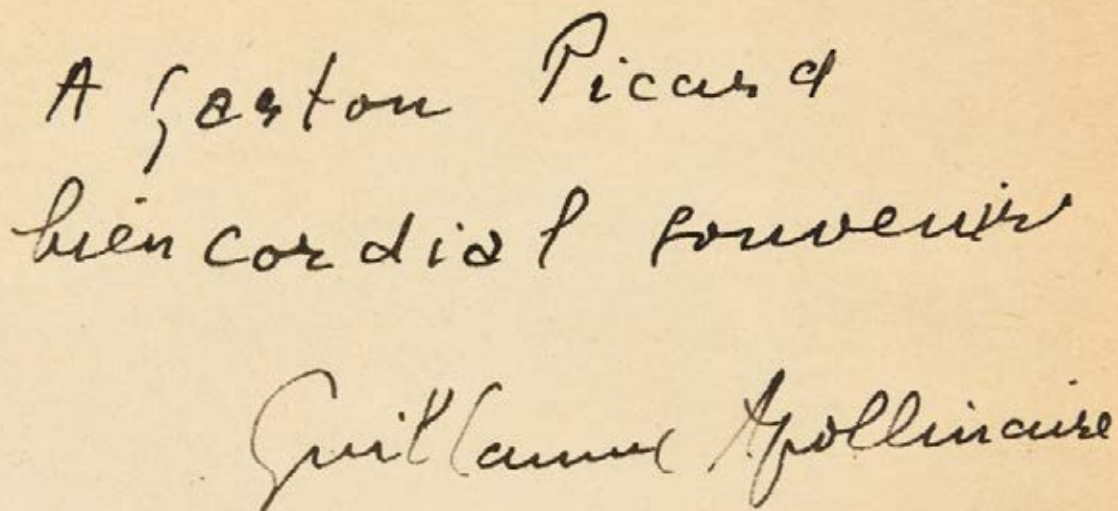 A Gaston Picard
bien cordial souvenir
Guillaume Apollinaire